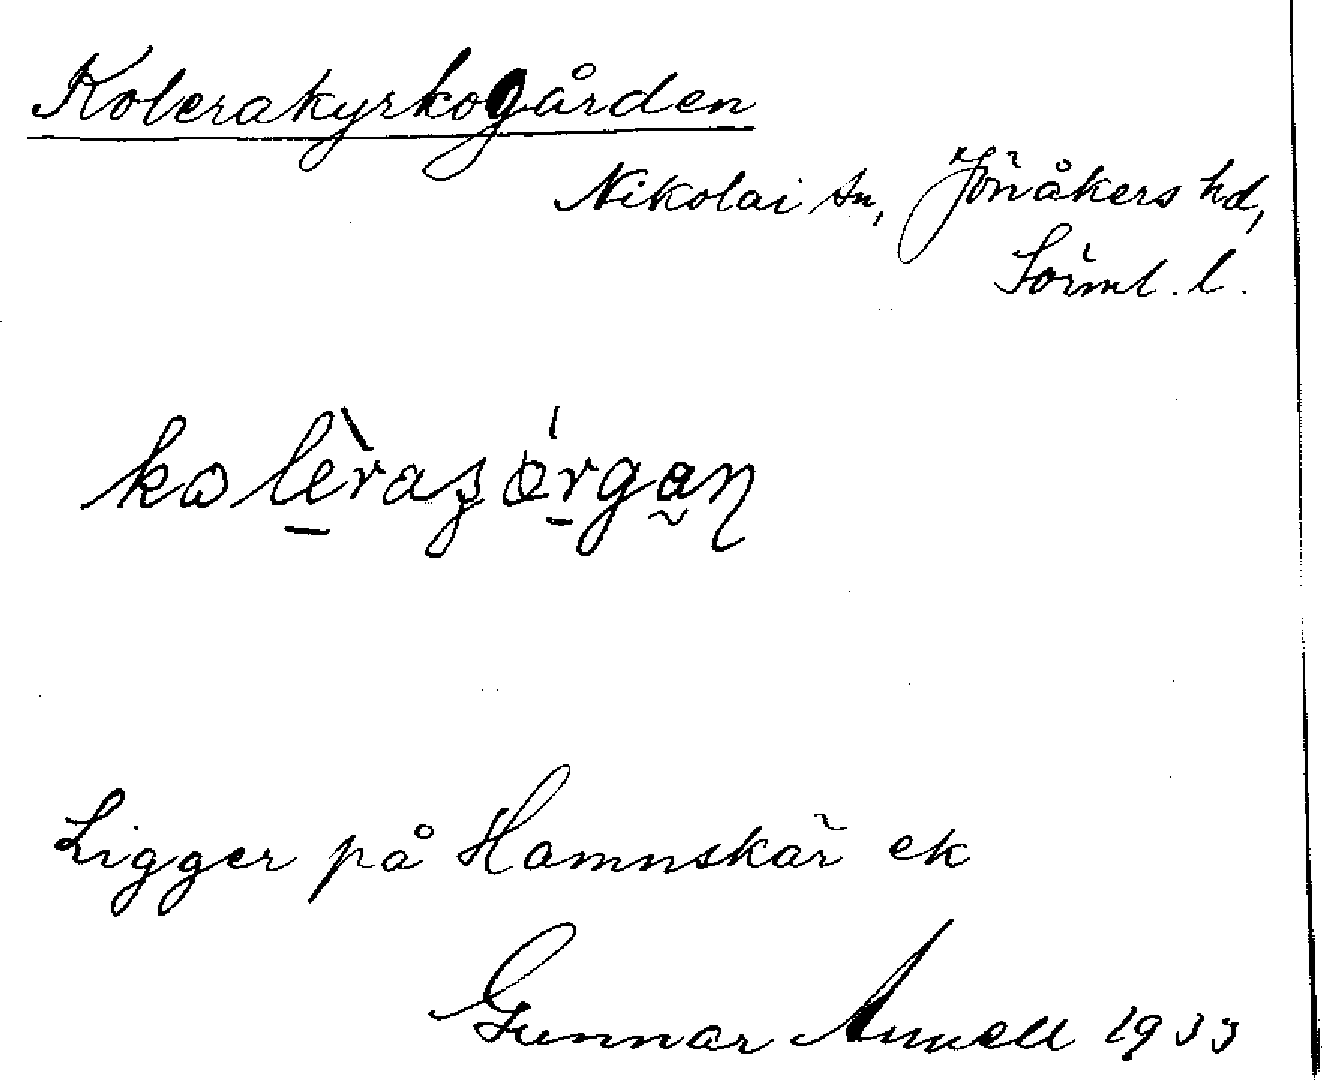 Kolerakyrkogården
Nikolai sn, Jönåkers hd,
Sörml. l.
Ligger på Hamnskär ek
Gunnar Annell 1933